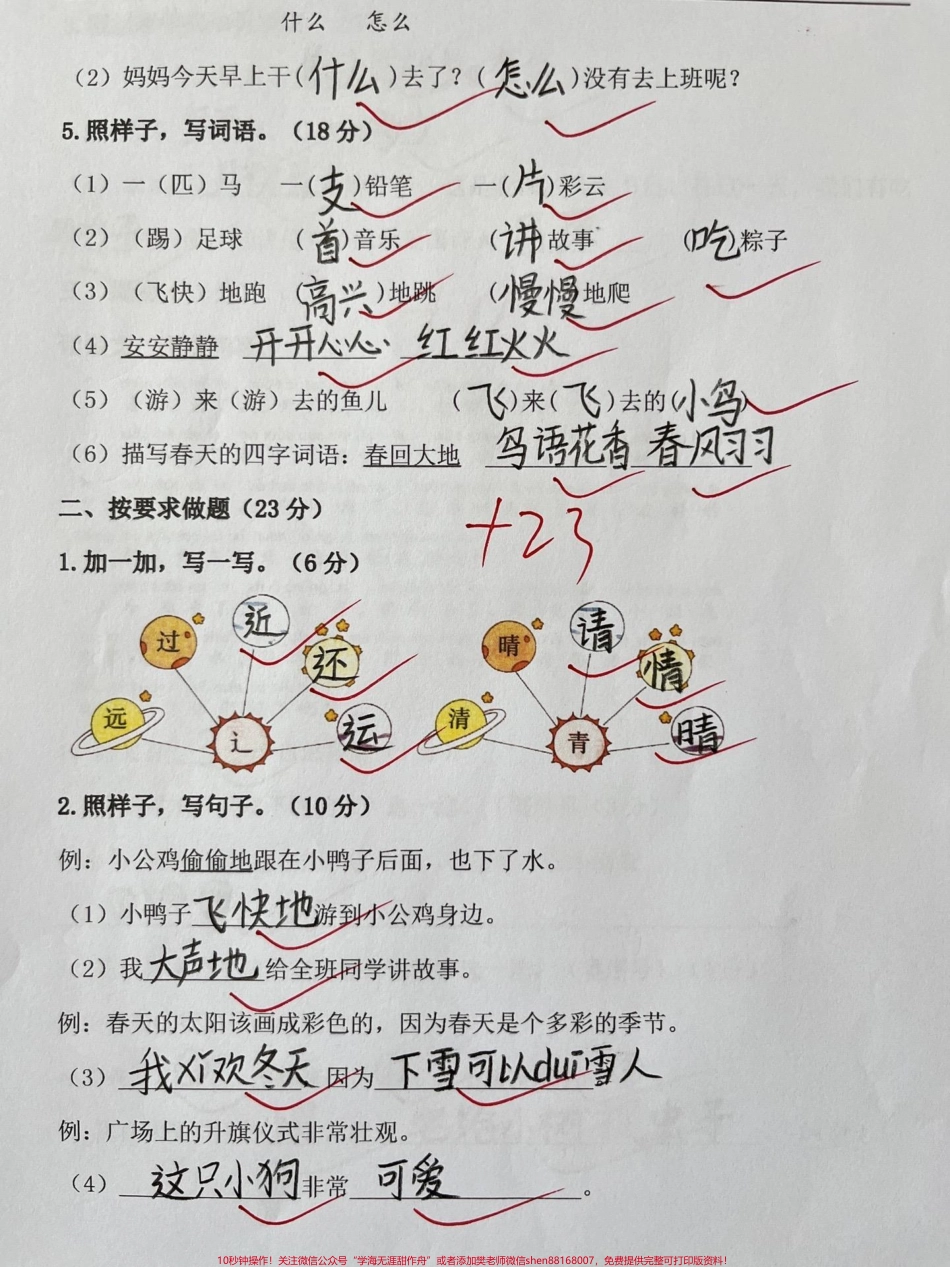 什么 怎么
（2）妈妈今天早上干(什么)去了？(怎么)没有去上班呢？
5.照样子，写词语。（18分）
（1）一（匹）马 一(支)铅笔 一(片)彩云
（2）（踢）足球 (首)音乐 (讲)故事 (吃)粽子
（3）（飞快）地跑 (高兴)地跳 (慢慢)地爬
（4）安安静静 开开心心 红红火火
（5）（游）来（游）去的鱼儿 (飞)来(飞)去的(小鸟)
（6）描写春天的四字词语：春回大地 鸟语花香 春风习习
二、按要求做题（23分）
+23
1.加一加，写一写。（6分）
过 近 还 远 辶 运
晴 请 情 清 青 晴
2.照样子，写句子。（10分）
例：小公鸡偷偷地跟在小鸭子后面，也下了水。
（1）小鸭子飞快地游到小公鸡身边。
（2）我大声地给全班同学讲故事。
例：春天的太阳该画成彩色的，因为春天是个多彩的季节。
（3）我xǐ欢冬天 因为 下雪可以duī雪人
例：广场上的升旗仪式非常壮观。
（4）这只小狗非常可爱。
10秒钟操作！关注微信公众号“学海无涯甜作舟”或者添加樊老师微信shen88168007，免费提供完整可打印版资料！